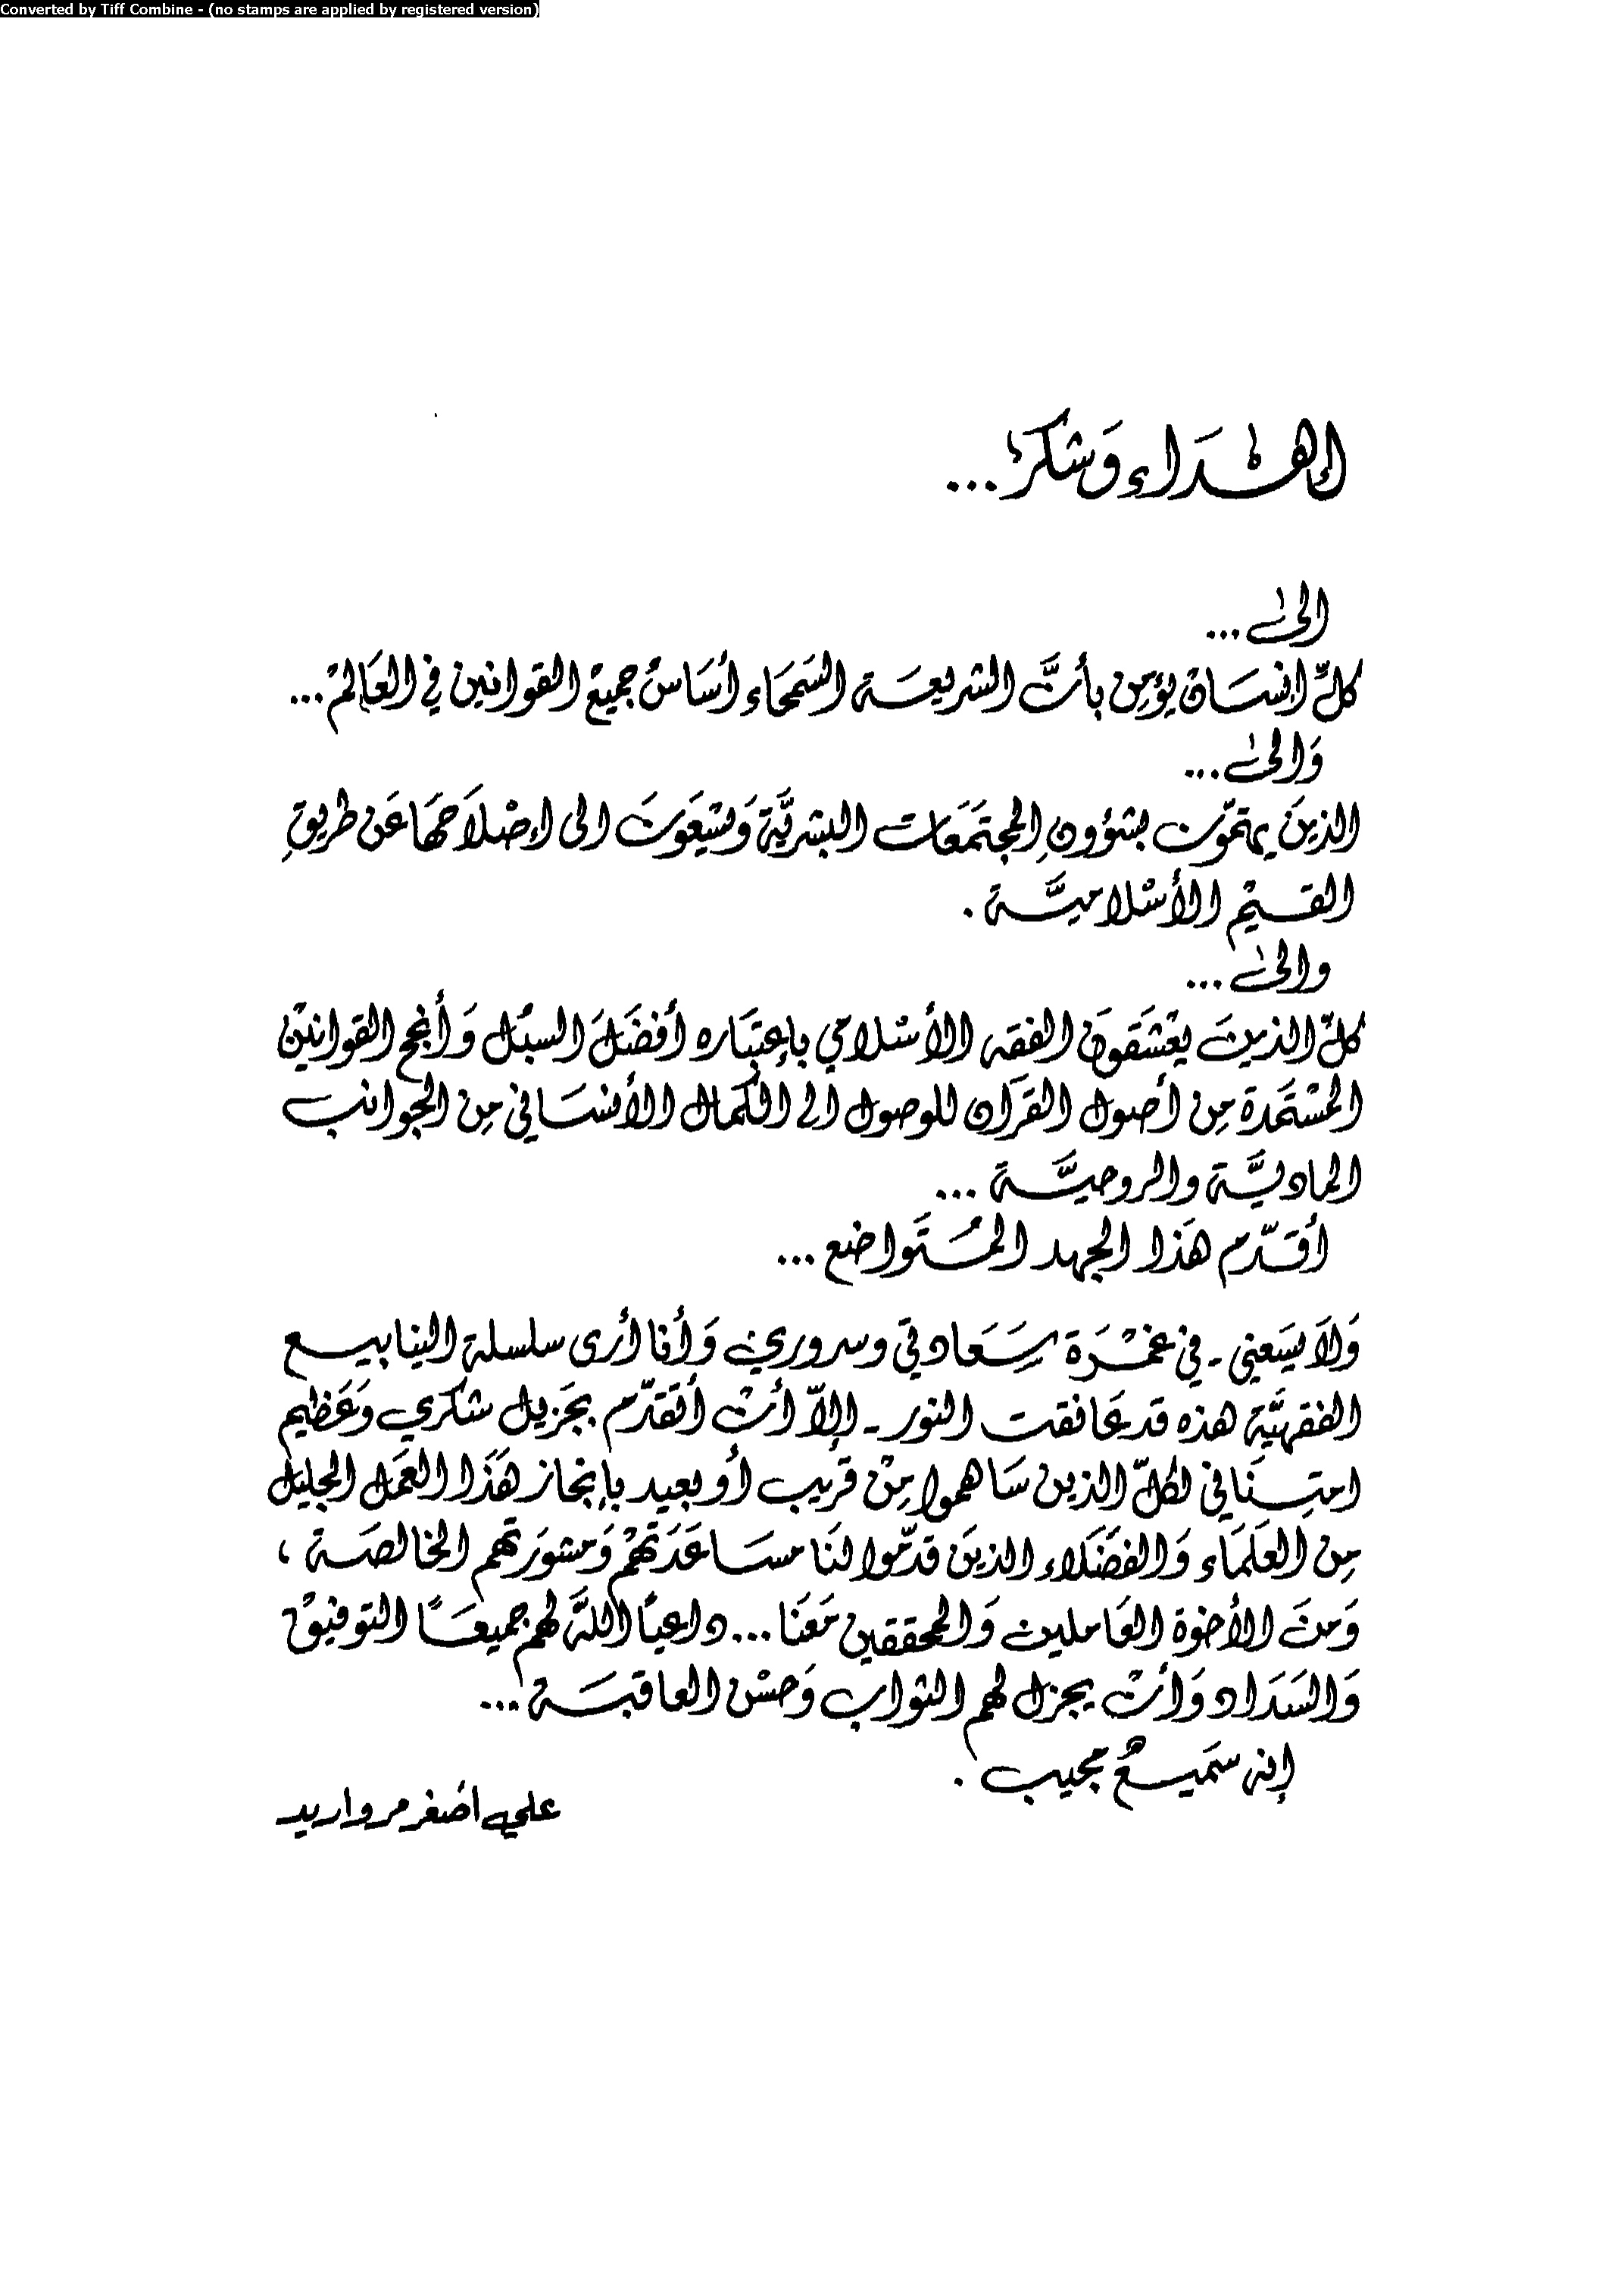 Converted by Tiff Combine - (no stamps are applied by registered version)
إهْدَاء وَشكرٌ ...
الىٰ ...
كلّ انسَان يؤمِن بأنَّ الشريعَة السَمحَاء أسَاسُ جميع القوانين في العَالمْ ...
وَالىٰ ...
الذينَ يهتمّون بشؤونِ المجتمَعَات البشريَّة وَيسْعَونَ الى إصْلاَحهَا عَن طريقِ
القيَمْ الأسْلاميَّة .
والىٰ ...
كلّ الذينَ يعْشَقونَ الفقه الأسْلامي بإعتبَاره أفضَلَ السبُل وَأنجح القوانيْن
المسْتمَدة مِن أصول القرآن للوصول الى الكمَال الأنسَاني مِن الجوانب
الماديَّة والروحيَّة ...
أقَدّم هَذا الجهد المُتَواضع ...
وَلاَ يسَعني - في غمْرَة سَعَادتي وسروري وَأنا أرى سلسلة الينابيع
الفقهيَّة هذه قد عَانقت النور - إلاّ أنْ أتقَدّم بجَزيل شكري وَعَظيم
امتِنَاني لكلّ الذين سَاهموا مِنْ قريب أو بعيد بإنجاز هَذَا العَمَل الجليل
مِن العلَمَاء وَالفضَلاء الذينَ قدّموا لنَا مسَاعَدَتهُمْ وَمشورَتهم الخالصَة ،
وَمنَ الأخوَة العَاملين وَالمحققين مَعَنَا ... داعيًا اللَّهَ لهم جميعًا التوفيقْ
وَالسَدَاد وَأنْ يجزل لهم الثواب وَحسْن العاقبَة ...
إنه سَميعٌ مجيب .
علي اصغر مرواريد